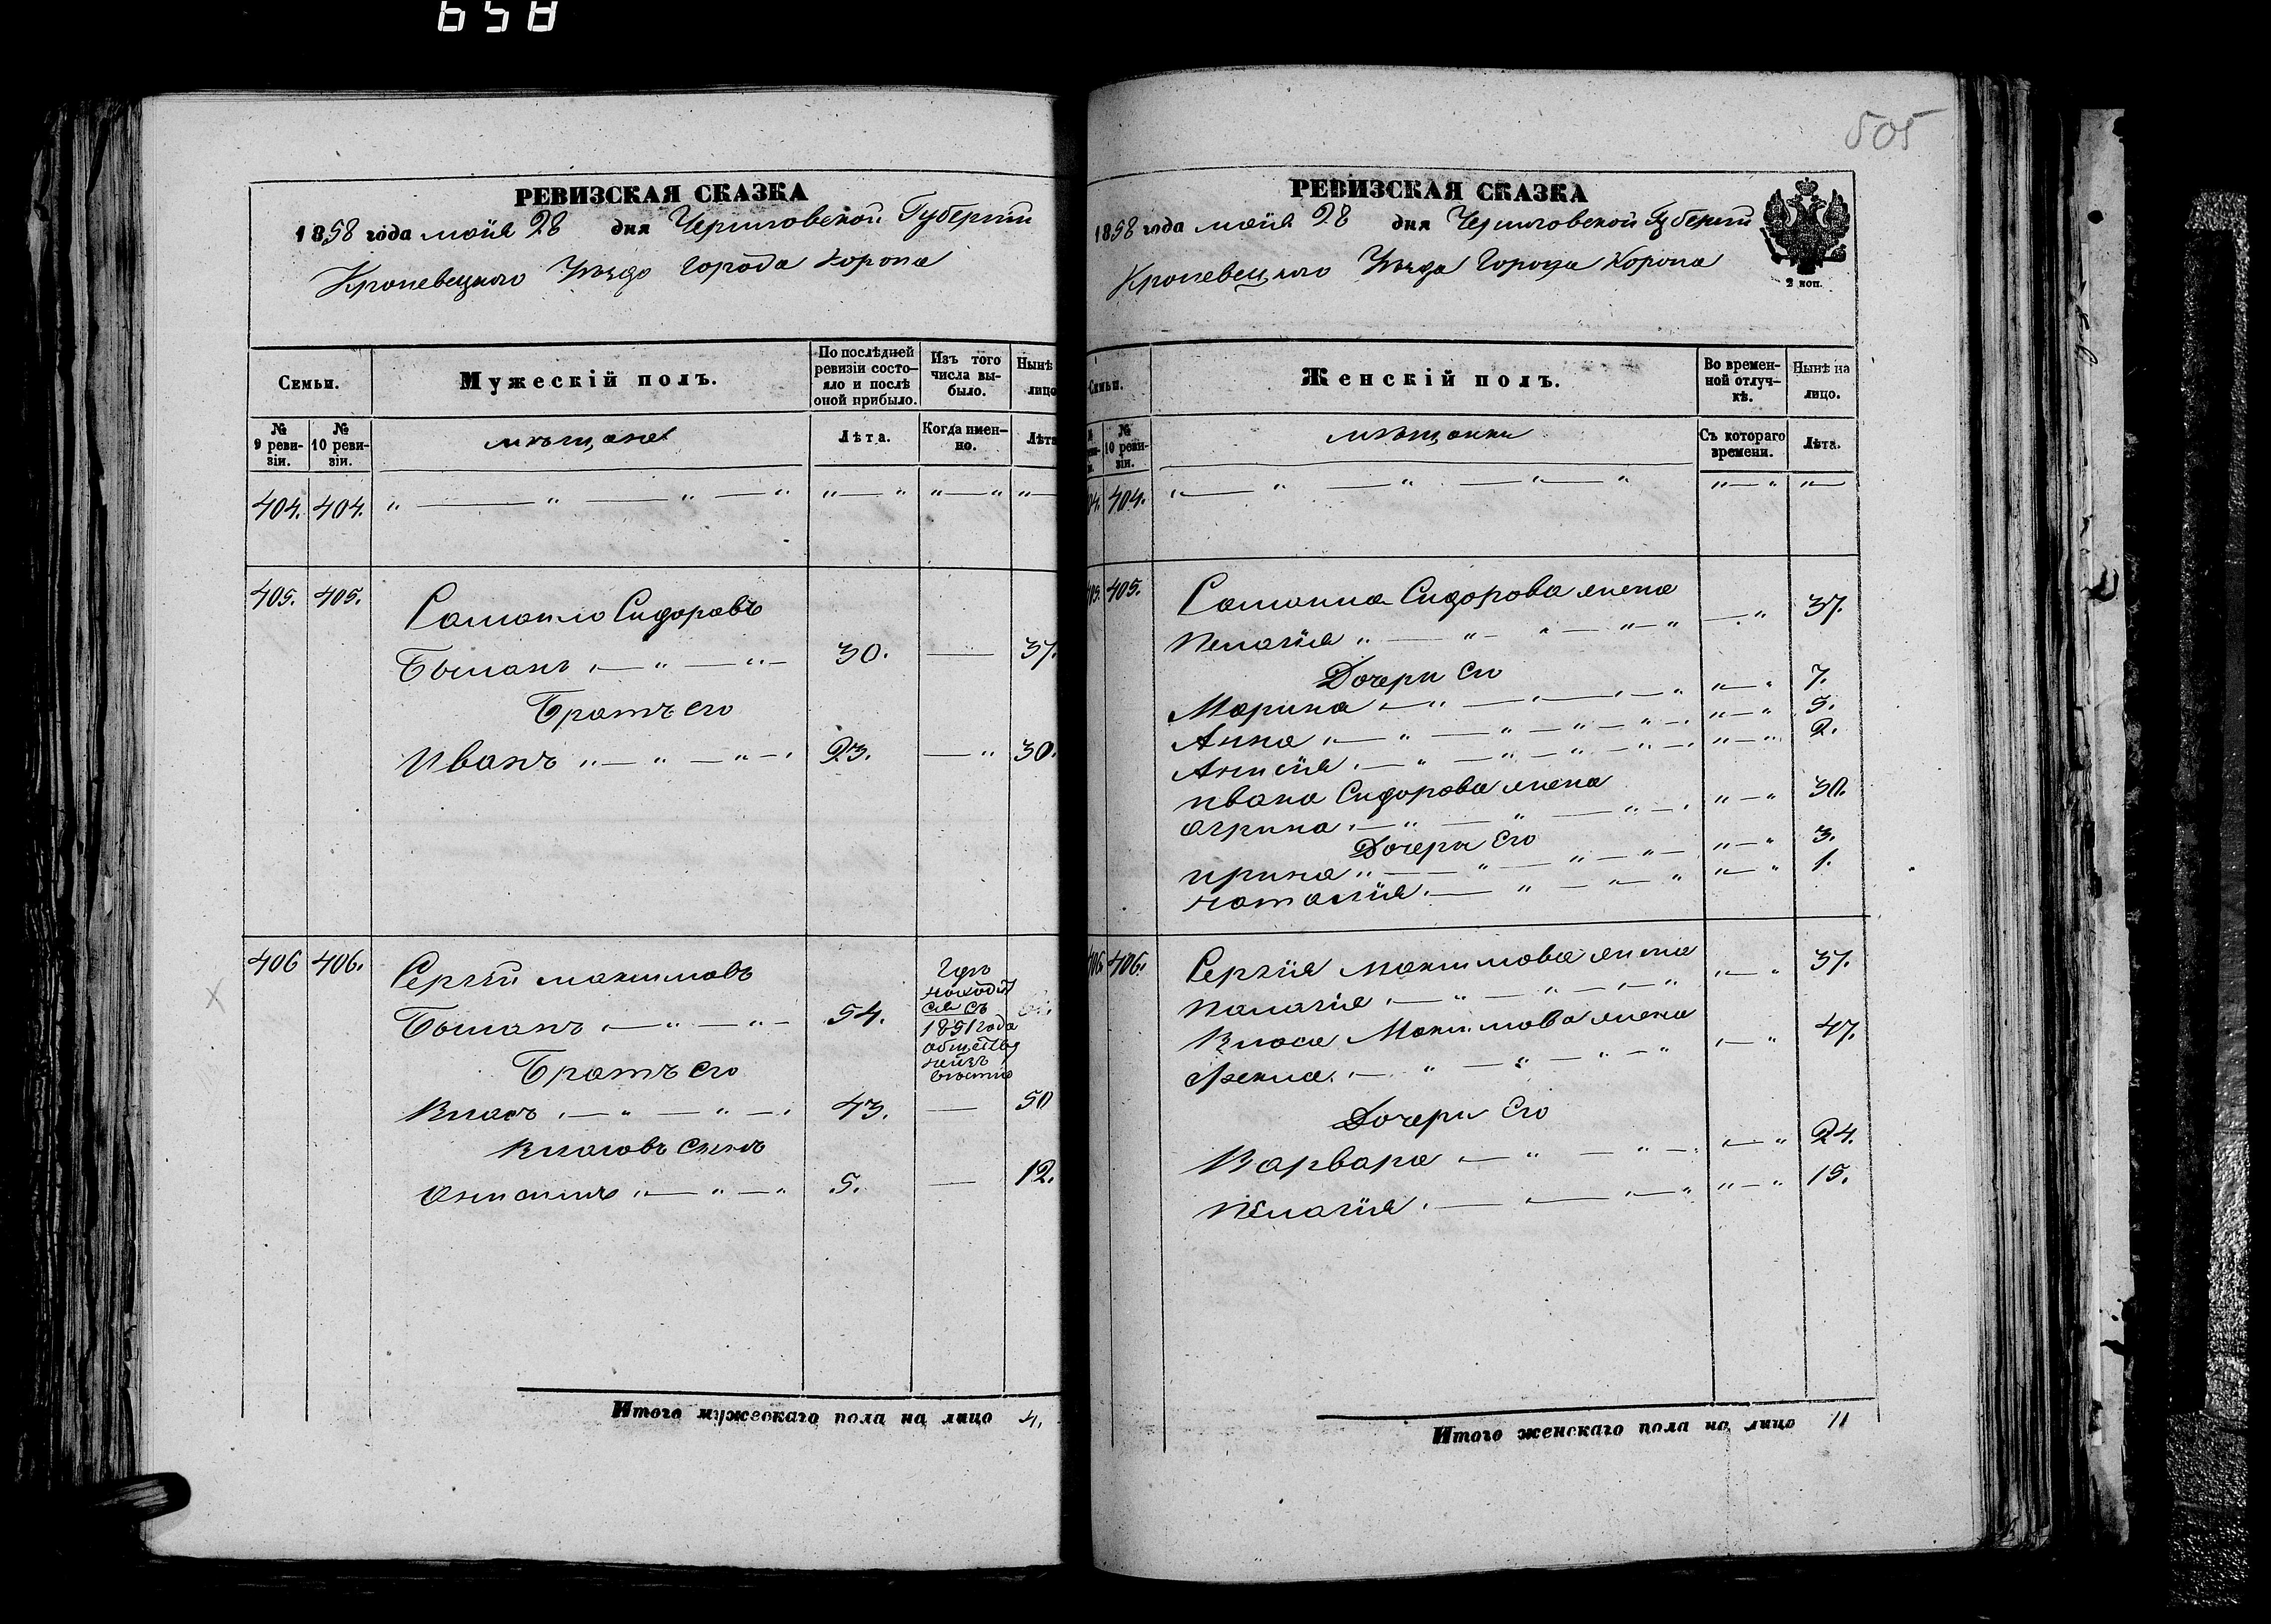 658
РЕВИЗСКАЯ СКАЗКА
1858 года маія 28 дня Черниговской Губерніи
Кролевецкого Уѣзда города Коропа
Семьи.
Мужескій полъ.
По послѣдней ревизіи состояло и послѣ оной прибыло.
Изъ того числа выбыло.
Нынѣ
лицо
№ 9 ревизіи.
№ 10 ревизіи.
мѣщане
Лѣта.
Когда именно.
Лѣта
404. 404. " — " — " — " " — " " — " " —
405. 405.
Самоило Сидоровъ
Быланъ " — " — " — 30. — 37.
Братъ его
Иванъ " — " — " — " 23. — " 30.
406 406.
Сергѣй максимовъ
Быланъ " — " — " — 54.
Гдѣ
находит
ся съ
1851 года
обществу
неизъ
вѣстно
Братъ его
Власъ " — " — " — " 43. — 50
Власовъ сынъ
Онисимъ " — " — " 5. — 12.
Итого мужескаго пола на лицо 4.
505
РЕВИЗСКАЯ СКАЗКА
1858 года маія 28 дня Черниговской Губерніи
Кролевецкого Уѣзда Города Коропа
2 коп.
Семьи.
Женскій полъ.
Во временной отлучкѣ.
Нынѣ на лицо.
№ 10 ревизіи.
мѣщанки
Съ котораго времени.
Лѣта.
04. 404. " — " — " — " — " " — " " —
405. 405.
Самоила Сидорова жена
Пелагія " — " — " — " — " — " 37.
Дочери Его
Марина " — " — " — " — " " — " 7.
Анна " — " — " — " — " — " " — " 5.
Анисія " — " — " — " — " — " " — " 2.
ивана Сидорова жена
агрипа " — " — " — " — " " — " 30.
Дочери Его
ирина " — " — " — " — " — " 3.
наталія " — " — " — " " — " 1.
406. 406.
Сергія максимова жена
Палагія " — " — " — " — " " — " 37.
Власа Максимова жена
Фекла " — " — " — " — " " — " 47.
Дочери Его
Варвара " — " — " — " " — " 24.
пелагія " — " — " — " " — " 15.
Итого женскаго пола на лицо 11